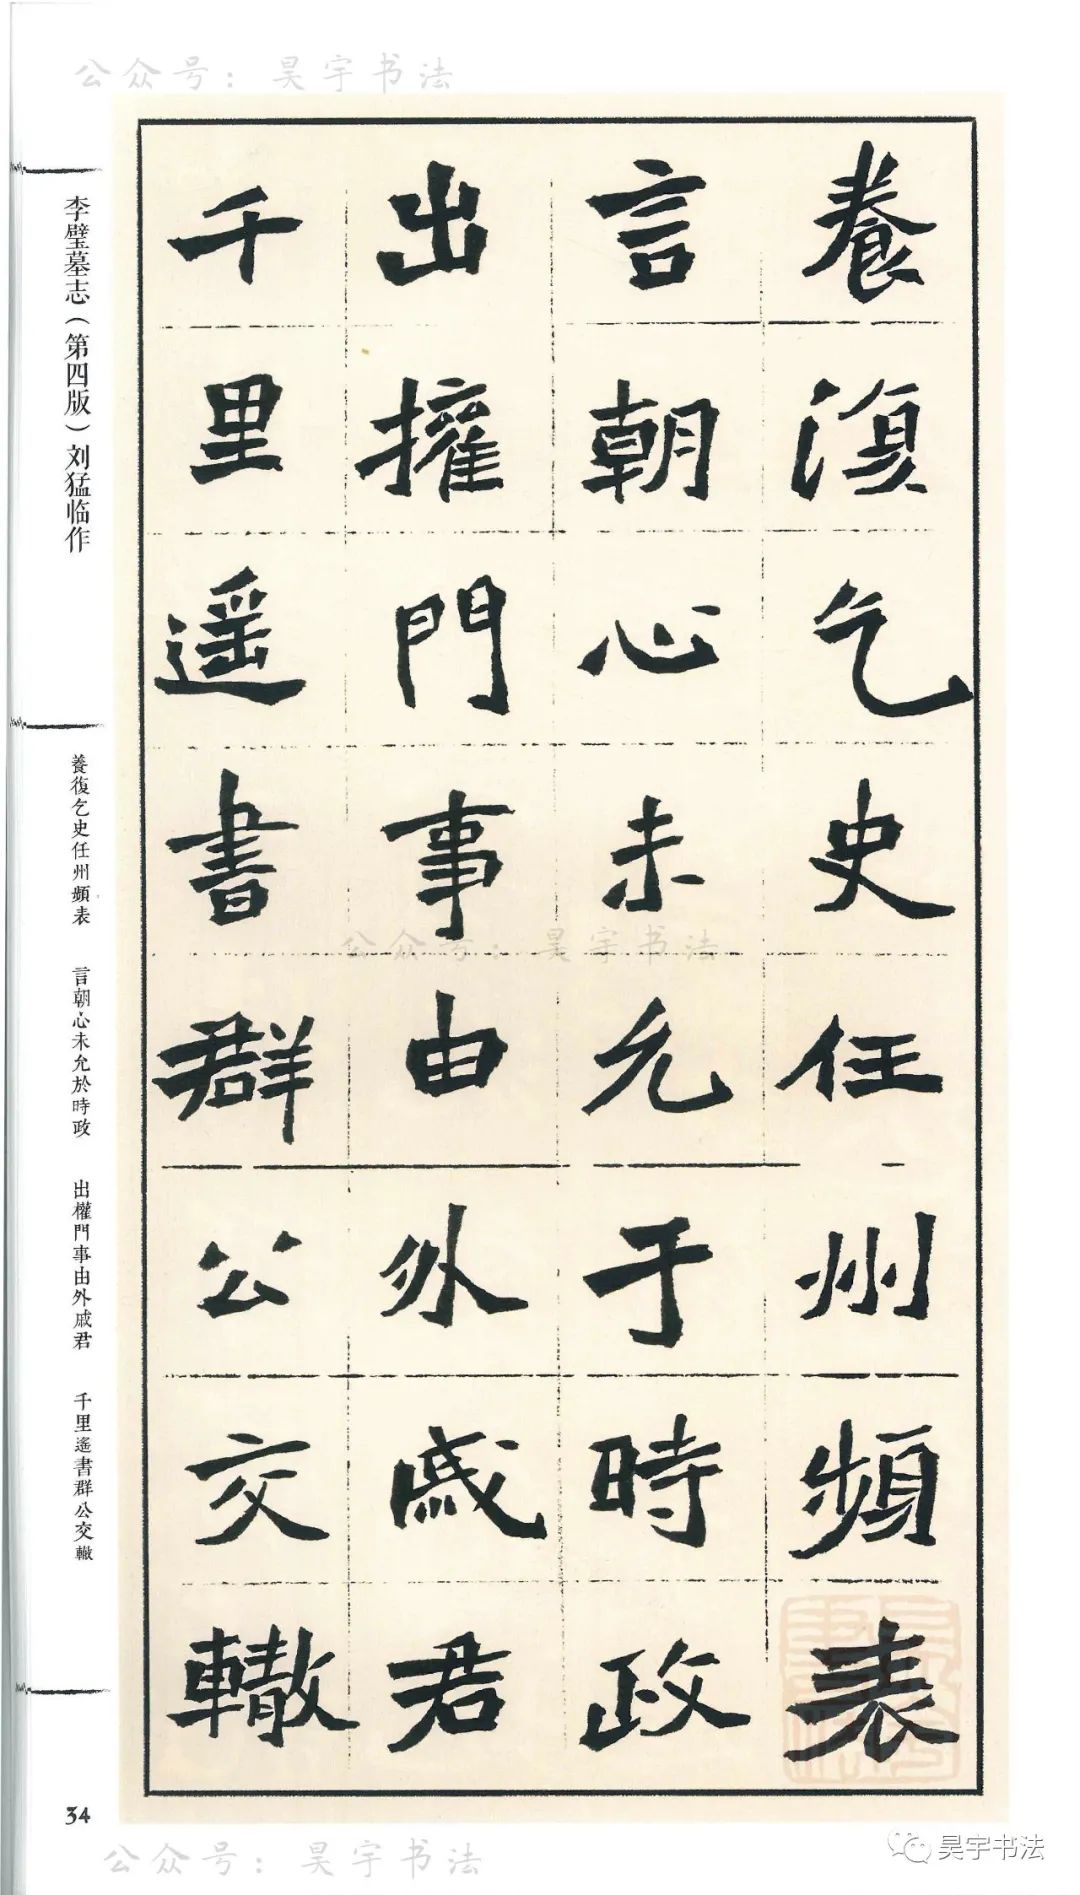 公众号：昊宇书法
養復乞史任州頻表
言朝心未允于時政
出擢門事由外戚君
千里遥書群公交轍
李璧墓志（第四版）刘猛临作
養復乞史任州頻表
言朝心未允於時政
出權門事由外戚君
千里遙書群公交轍
34
公众号：昊宇书法
公众号：昊宇书法
昊宇书法